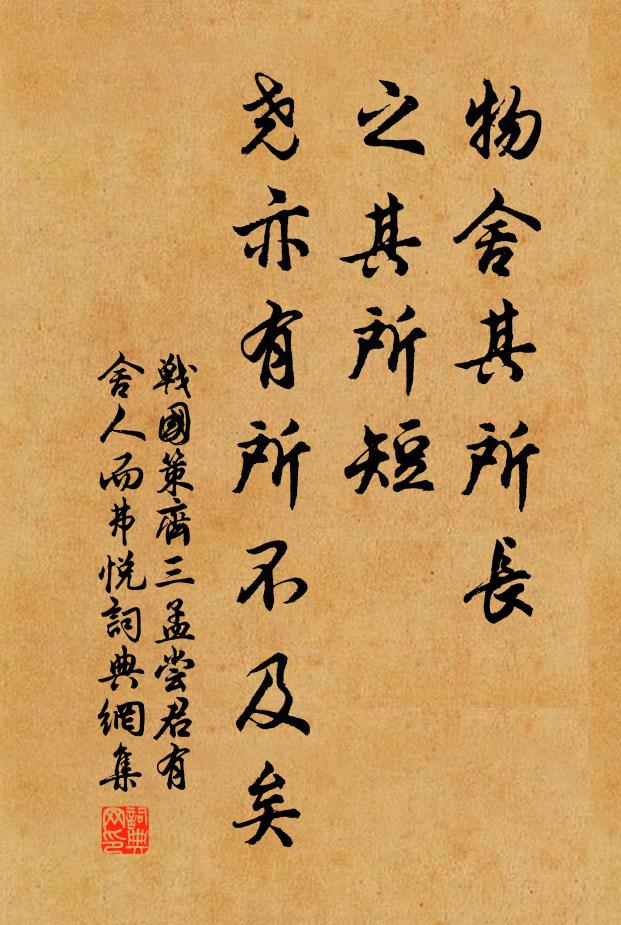 物舍其所長
之其所短
尧亦有所不及矣
戰國策齊三孟尝君有
舍人而弗悅詞典網集
詞典网印